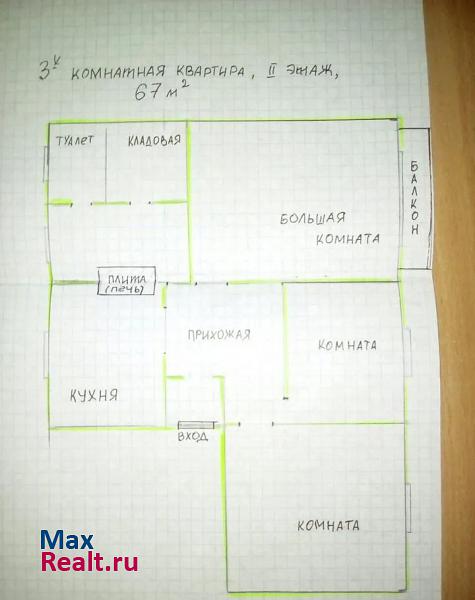 3х КОМНАТНАЯ КВАРТИРА, II ЭТАЖ,
67 м²
ТУАЛЕТ
КЛАДОВАЯ
БАЛКОН
БОЛЬШАЯ
КОМНАТА
ПЛИТА
(ПЕЧЬ)
ПРИХОЖАЯ
КОМНАТА
КУХНЯ
ВХОД
КОМНАТА
Max
Realt.ru